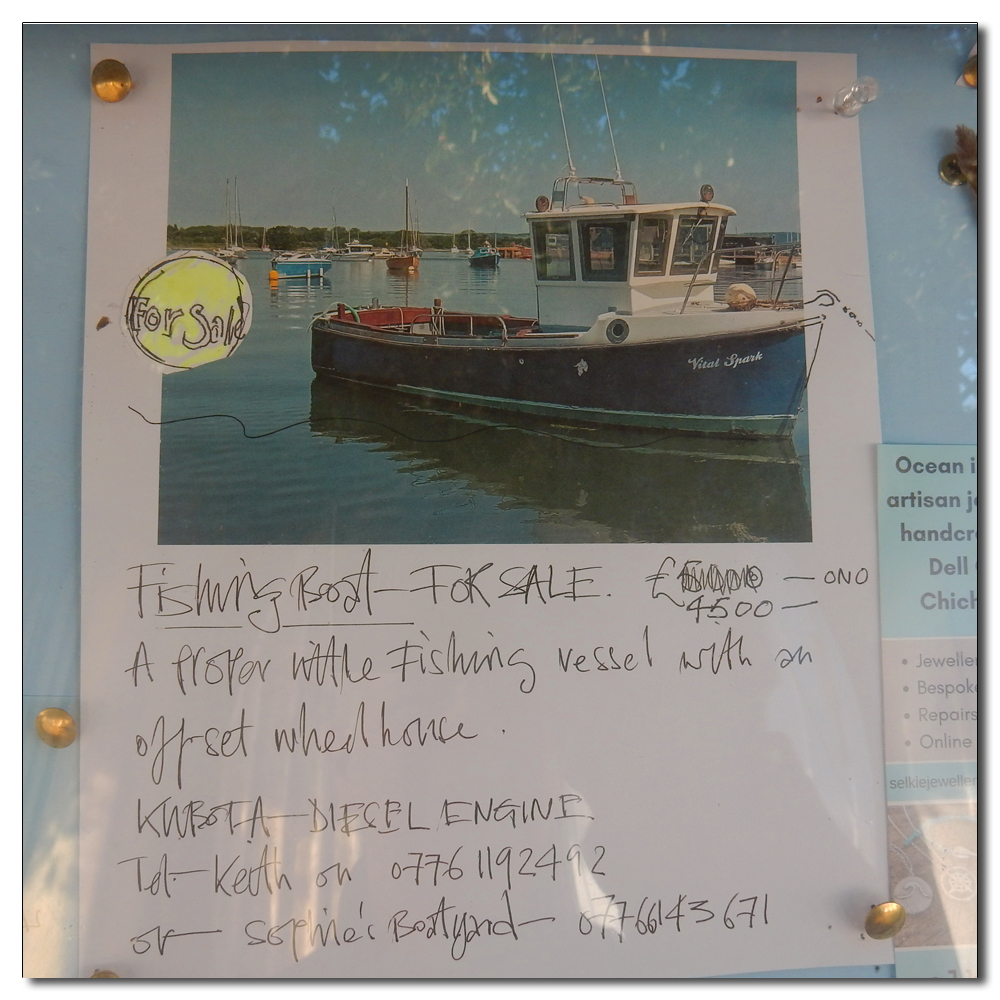 For Sale
Vital Spark
Fishing Boat — FOR SALE. £ — ONO
4500 —
A proper little Fishing vessel with an
off-set wheelhouse.
KUBOTA — DIESEL ENGINE.
Tel — Keith on 07761192492
or — Sophie's Boatyard — 07766143671
Ocean i
artisan je
handcr
Dell
Chich
• Jewelle
• Bespok
• Repairs
• Online
selkiejeweller